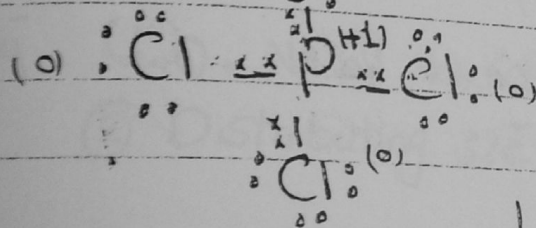 (0) Cl P (+1) Cl (0)
Cl (0)